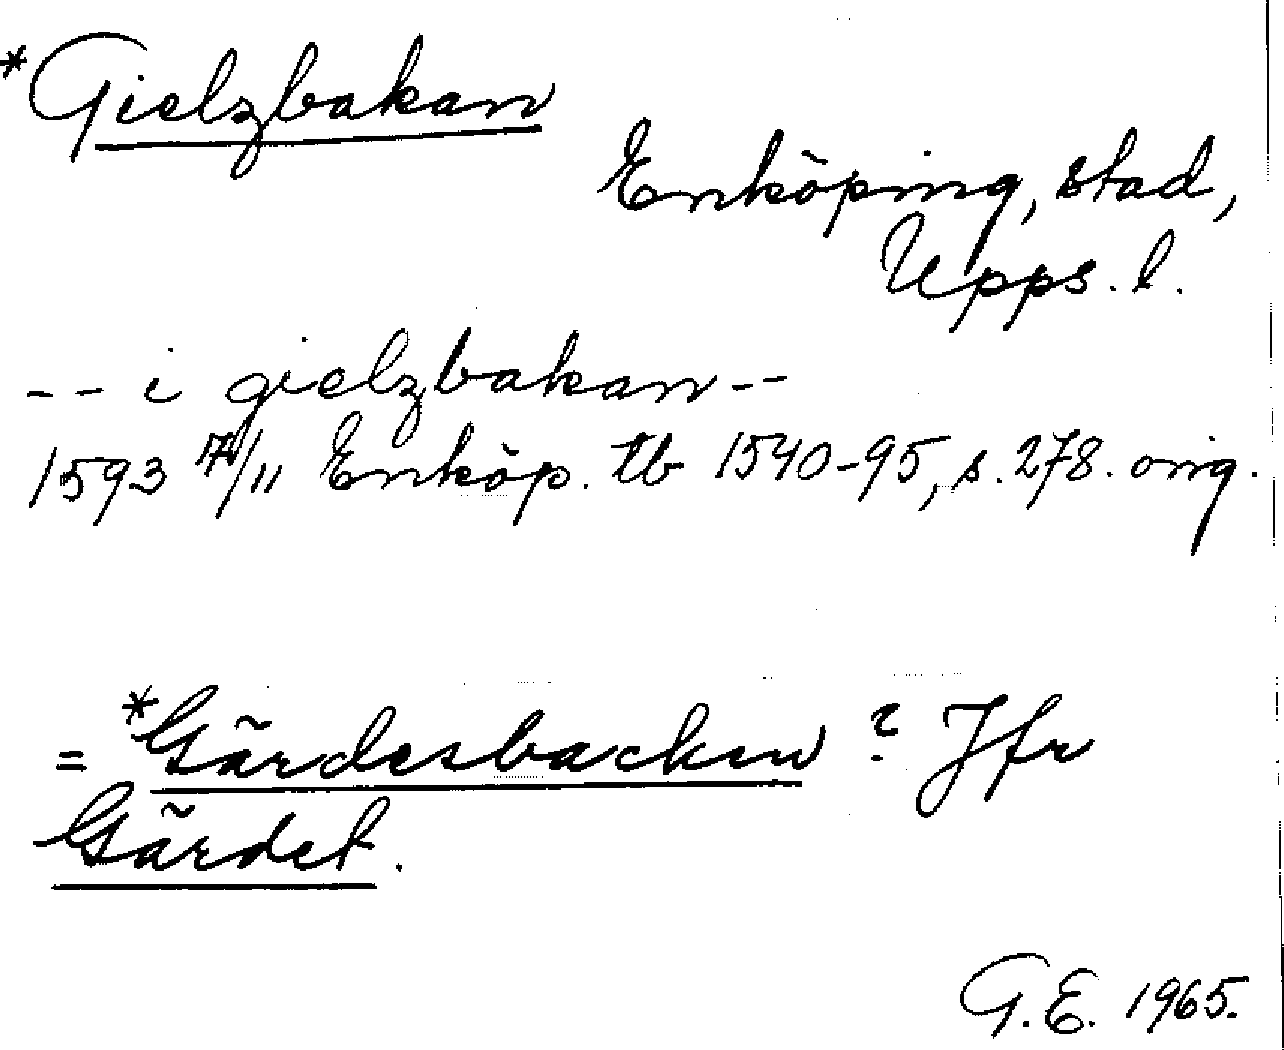 *Gielzbakan
Enköping, stad,
Upps. l.
-- i gielzbakan --
1593 7/11 Enköp. tb 1540-95, s. 278. orig.
= *Gärdesbacken ? Jfr
Gärdet.
G.E. 1965.